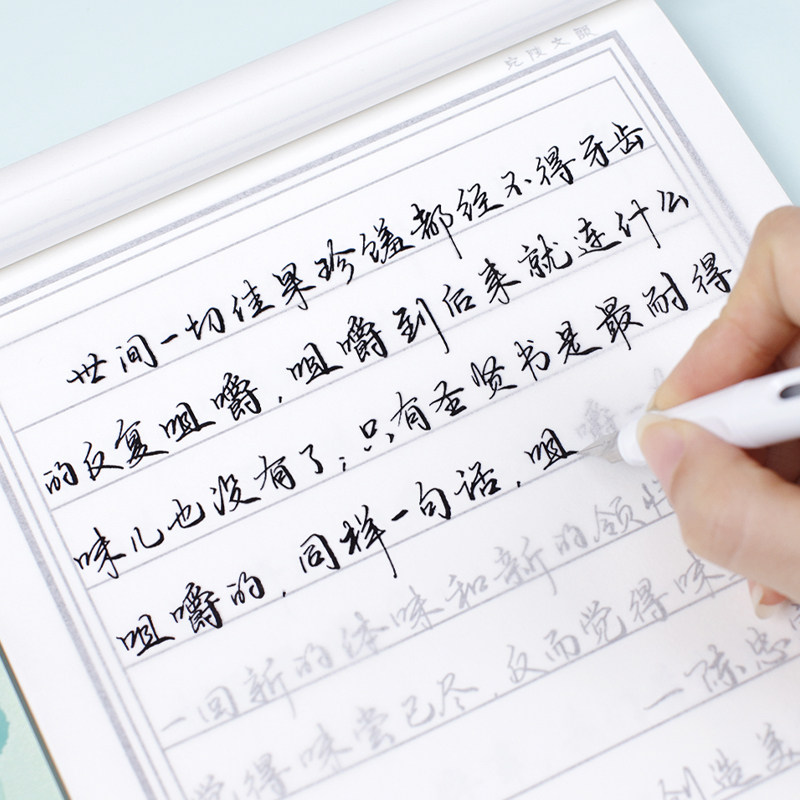 世间一切佳果珍馐都经不得牙齿
的反复咀嚼,咀嚼到后来就连什么
味儿也没有了;只有圣贤书是最耐得
咀嚼的,同样一句话,咀嚼一
一回新的体味和新的领悟
觉得味尝已尽,反而觉得味
一陈忠
创造美